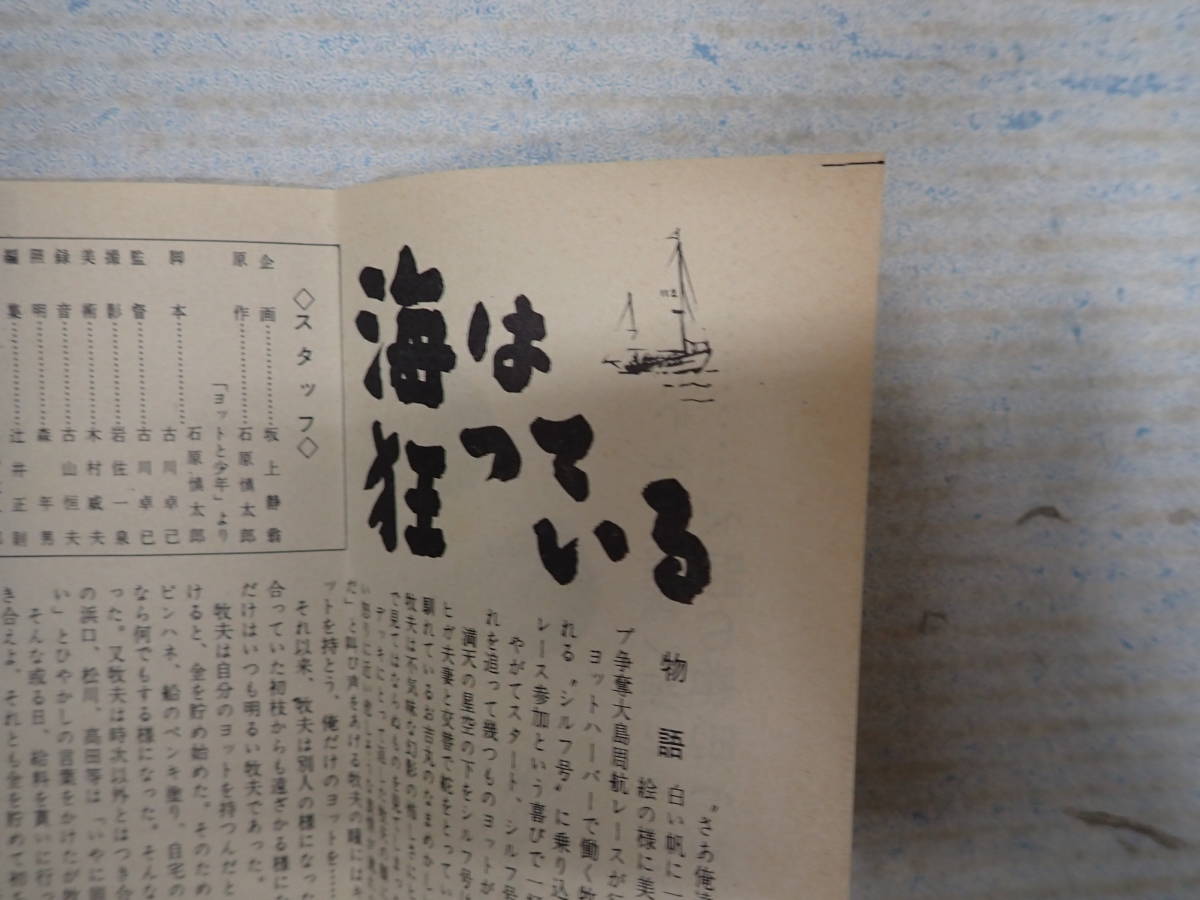 海は
狂っている
物語
“さあ俺
白い帆に一
絵の様に美
プ争奪大島周航レースが
ヨットハーバーで働く牧
れる“シルフ号”に乗り込
レース参加という喜びで一
やがてスタート、シルフ号
れを追って幾つものヨットが
満天の星空の下をシルフ号
ヒガ夫妻と交替で舵をとってい
馴れているお吉丸のなまめかし
牧夫は不気味な幻影の
で見てはならぬものを見てしまっ
だ」と叫び声をあげる牧夫の瞳には
ットを持とう、俺だけのヨットを……
それ以来、牧夫は別人の様になった
合っていた初枝からも遠ざかる様に
だけはいつも明るい牧夫であった。
牧夫は自分のヨットを持つんだと
けると、金を貯め始めた。そのため
ピンハネ、船のペンキ塗り、自宅の
なら何でもする様になった。そんな
った。又牧夫は時次以外とはつき合
の浜口、松川、高田等は「いやに
い」とひやかしの言葉をかけたが
そんな或る日、給料を貰いに行っ
き合えよ、それとも金を貯めて初
◇スタッフ◇
企画……………坂上静翁
原作……………石原慎太郎
「ヨットと少年」より
脚本……………石原慎太郎
古川卓己
監督……………古川卓已
撮影……………岩佐一泉
美術……………木村威夫
録音……………古山恒夫
照明……………森年男
編集……………辻井正則